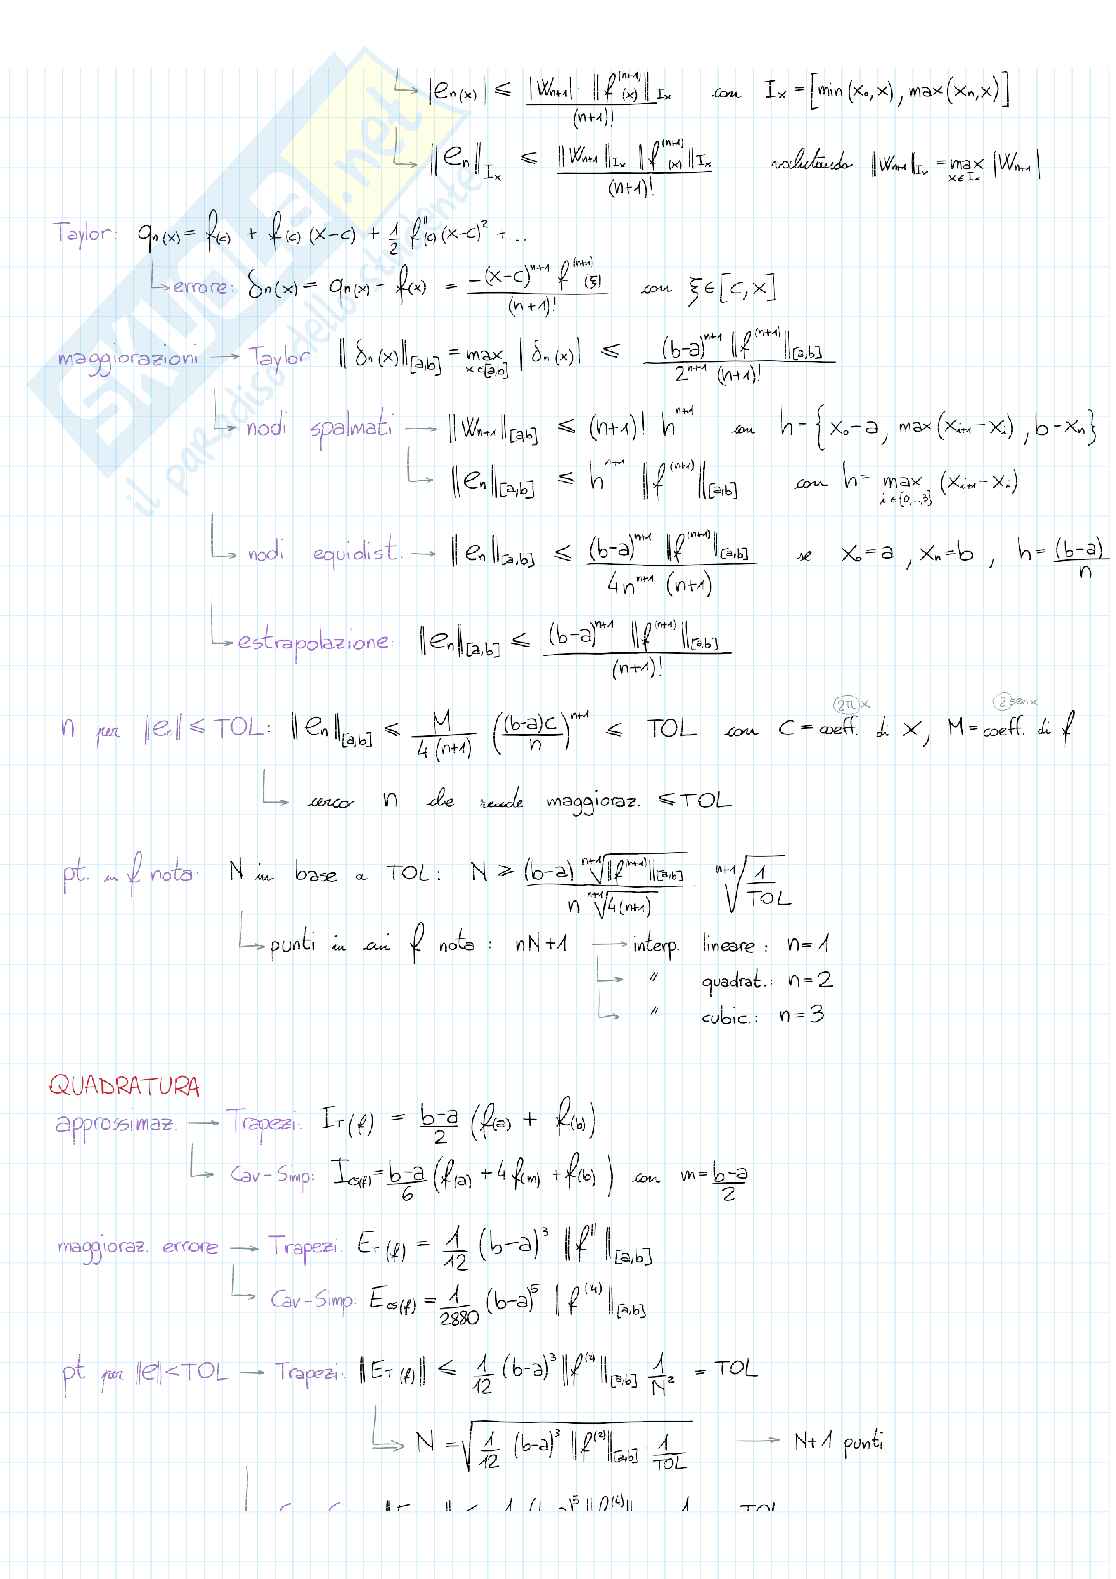 |e_n(x)| ≤ |W_{n+1}| ‖f^{(n+1)}(x)‖_{Ix} / (n+1)! con I_x = [min(x_0,x), max(x_n,x)]
‖e_n‖_{Ix} ≤ ‖W_{n+1}‖_{Ix} ‖f^{(n+1)}(x)‖_{Ix} / (n+1)! valutando ‖W_{n+1}‖_{Ix} = max_{x∈Ix} |W_{n+1}|
Taylor: q_n(x) = f(c) + f'(c) (x-c) + 1/2 f''(c) (x-c)^2 + ..
errore: δ_n(x) = q_n(x) - f(x) = -(x-c)^{n+1} f^{(n+1)}(ξ) / (n+1)! con ξ∈[c,x]
maggiorazioni → Taylor ‖δ_n(x)‖_{[a,b]} = max_{x∈[a,b]} |δ_n(x)| ≤ (b-a)^{n+1} ‖f^{(n+1)}‖_{[a,b]} / 2^{n+1} (n+1)!
nodi spalmati → ‖W_{n+1}‖_{[a,b]} ≤ (n+1)! h^{n+1} con h = {x_0-a, max(x_{i+1}-x_i), b-x_n}
‖e_n‖_{[a,b]} ≤ h^{n+1} ‖f^{(n+1)}‖_{[a,b]} con h = max_{i∈{0,..,3}} (x_{i+1}-x_i)
nodi equidist. → ‖e_n‖_{[a,b]} ≤ (b-a)^{n+1} ‖f^{(n+1)}‖_{[a,b]} / 4n^{n+1} (n+1) se x_0=a, x_n=b, h = (b-a)/n
estrapolazione: ‖e_n‖_{[a,b]} ≤ (b-a)^{n+1} ‖f^{(n+1)}‖_{[a,b]} / (n+1)!
2π x 2 sen x
n per ‖e‖ ≤ TOL: ‖e_n‖_{[a,b]} ≤ M / 4(n+1) ((b-a)C / n)^{n+1} ≤ TOL con C = coeff. di x, M = coeff. di f
cerco n che rende maggioraz. ≤ TOL
pt. in f nota: N in base a TOL: N ≥ (b-a) ^{n+1}√‖f^{(n+1)}‖_{[a,b]} / n ^{n+1}√4(n+1) ^{n+1}√1/TOL
punti in cui f nota: nN+1 → interp. lineare: n=1
" quadrat.: n=2
" cubic.: n=3
QUADRATURA
approssimaz. → Trapezi: I_T(f) = b-a/2 (f(a) + f(b))
Cav-Simp: I_{CS}(f) = b-a/6 (f(a) + 4f(m) + f(b)) con m = b-a/2
maggioraz. errore → Trapezi: E_T(f) = 1/12 (b-a)^3 ‖f''‖_{[a,b]}
Cav-Simp: E_{CS}(f) = 1/2880 (b-a)^5 |f^{(4)}‖_{[a,b]}
pt per ‖e‖<TOL → Trapezi: ‖E_T(f)‖ ≤ 1/12 (b-a)^3 ‖f^{(2)}‖_{[a,b]} 1/N^2 = TOL
N = √1/12 (b-a)^3 ‖f^{(2)}‖_{[a,b]} 1/TOL → N+1 punti
SKUOLA.net
il paradiso dello studente